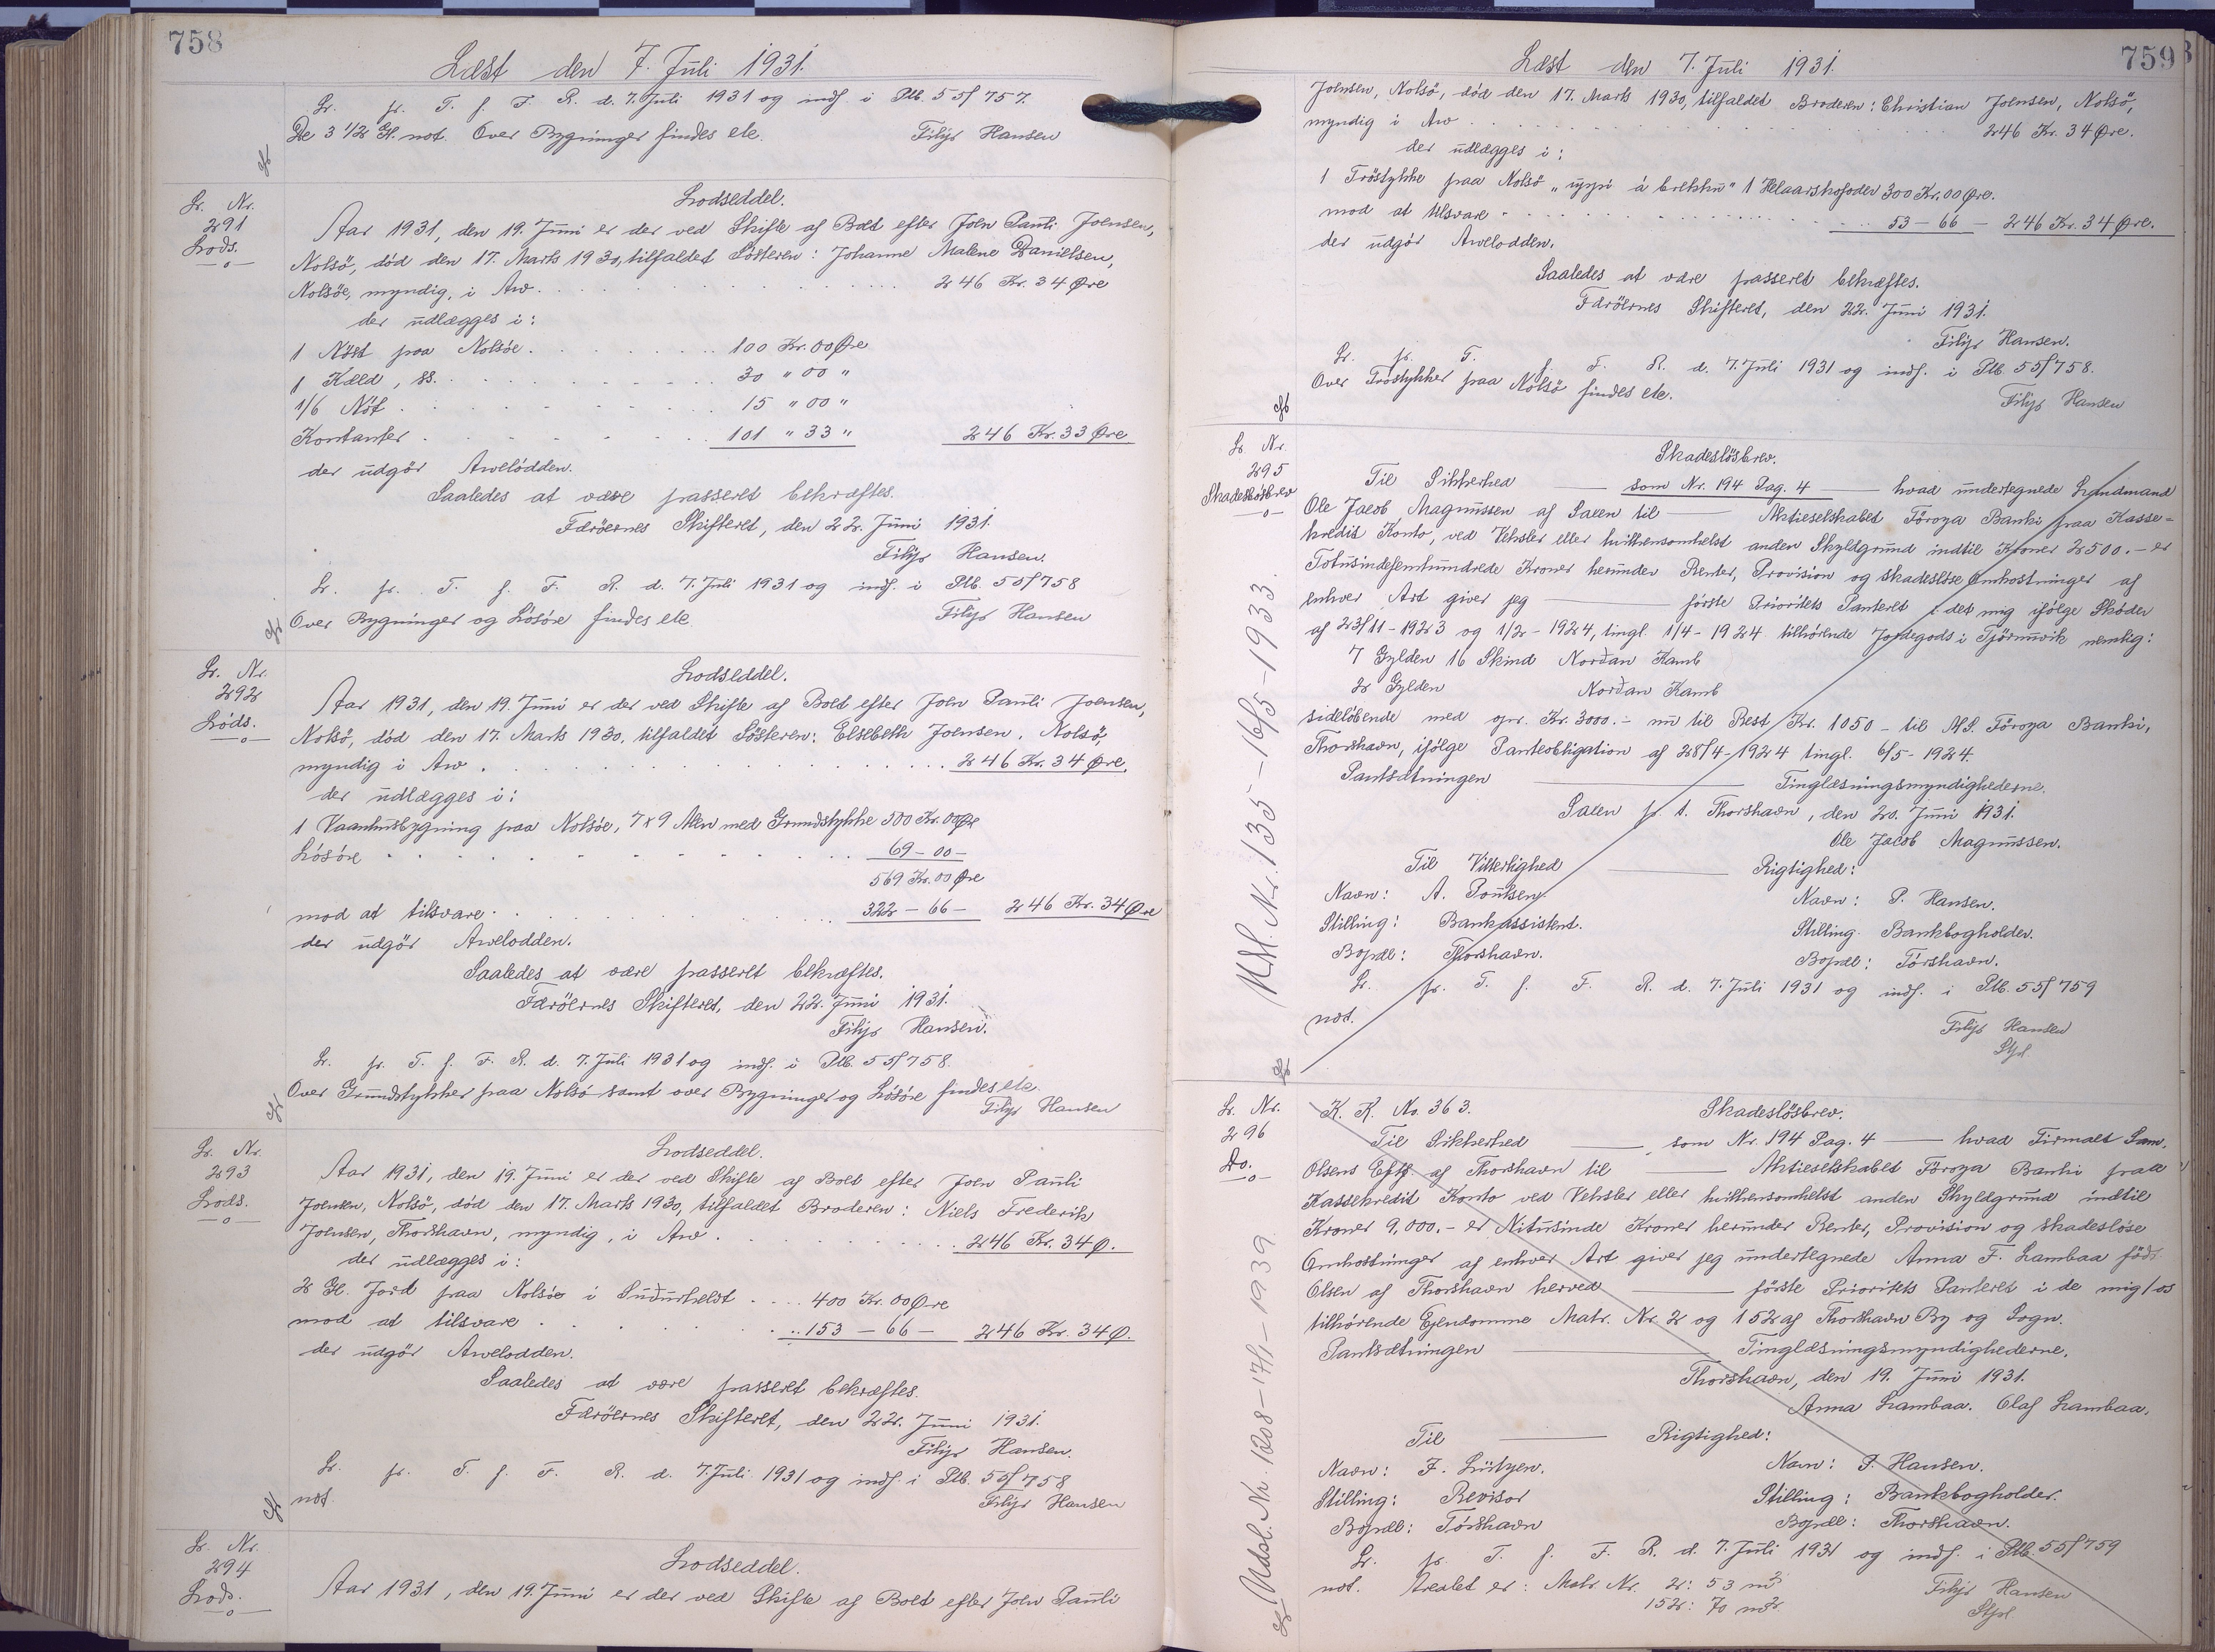 758
Læst den 7. Juli 1931.
Lr. pr. T. f. F. R. d. 7. Juli 1931 og indf. i Ptb. 55f 757.
De 3 1/2 Gl. not. Over Bygninger findes etc. Filip Hansen
Lr. Nr.
291
Lods.
Lodseddel.
Aar 1931, den 19. Juni er der ved Skifte af Boet efter Joen Pauli Joensen,
Nolsö, död den 17. Marts 1930, tilfaldet Sösteren: Johanne Malene Danielsen,
Nolsöe, myndig, i Arv. 246 Kr. 34 Øre
der udlægges i:
1 Nöst paa Nolsöe. 100 Kr. 00 Øre
1 Kæld, ss. 30 " 00 "
1/6 Nót 15 " 00 "
Kontanter 101 " 33 " 246 Kr. 33 Øre
der udgör Arvelodden.
Saaledes at være passeret bekræftes.
Færöernes Skifteret, den 22. Juni 1931.
Filip Hansen.
Lr. pr. T. f. F. R. d. 7. Juli 1931 og indf. i Ptb. 55f 758
Over Bygninger og Lösöre findes etc. Filip Hansen
Lr. Nr.
292
Lods.
Lodseddel.
Aar 1931, den 19. Juni er der ved Skifte af Boet efter Joen Pauli Joensen,
Nolsö, död den 17. Marts 1930, tilfaldet Sösteren: Elsebeth Joensen, Nolsö,
myndig i Arv. 246 Kr. 34 Øre.
der udlægges i:
1 Vaanhusbygning paa Nolsöe, 7 x 9 Alen med Grundstykke 500 Kr. 00 Øre
Lösöre 69 - 00 -
569 Kr. 00 Øre
mod at tilsvare. 322 - 66 - 246 Kr. 34 Øre
der udgör Arvelodden.
Saaledes at være passeret bekræftes.
Færöernes Skifteret, den 22. Juni 1931.
Filip Hansen.
Lr. pr. T. f. F. R. d. 7. Juli 1931 og indf. i Ptb. 55f 758.
Over Grundstykker paa Nolsö samt over Bygninger og Lösöre findes etc.
Filip Hansen
Lr. Nr.
293
Lods.
Lodseddel.
Aar 1931, den 19. Juni er der ved Skifte af Boet efter Joen Pauli
Joensen, Nolsö, död den 17. Marts 1930, tilfaldet Broderen: Niels Frederik
Joensen, Thorshavn, myndig, i Arv. 246 Kr. 34 Ø.
der udlægges i:
2 Gl. Jord paa Nolsöe i Suðurhelst 400 Kr. 00 Øre
mod at tilsvare 153 - 66 - 246 Kr. 34 Ø.
der udgör Arvelodden.
Saaledes at være passeret bekræftes.
Færöernes Skifteret, den 22. Juni 1931.
Filip Hansen.
Lr. pr. T. f. F. R. d. 7. Juli 1931 og indf. i Ptb. 55f 758
not Filip Hansen
Lr. Nr.
294
Lods.
Lodseddel.
Aar 1931, den 19. Juni er der ved Skifte af Boet efter Joen Pauli
759
Læst den 7. Juli 1931.
Joensen, Nolsö, död den 17. Marts 1930, tilfaldet Broderen: Christian Joensen, Nolsö,
myndig i Arv 246 Kr. 34 Øre.
der udlægges i:
1 Tröstykke paa Nolsö "uppi á brekku" 1 Helaarskofoder 300 Kr. 00 Øre.
mod at tilsvare 53 - 66 - 246 Kr. 34 Øre.
der udgör Arvelodden.
Saaledes at være passeret bekræftes.
Færöernes Skifteret, den 22. Juni 1931.
Filip Hansen.
Lr. pr. T. f. F. R. d. 7. Juli 1931 og indf. i Ptb. 55f 758.
Over Tröstykker paa Nolsö findes etc. Filip Hansen
Lr. Nr.
295
Skadeslösbrev
Udsl. Nr. 135 - 16/5 - 1933.
Skadeslösbrev.
Til Sikkerhed — som Nr. 194 Pag. 4 — hvad undertegnede Landmand
Ole Jacob Magnussen af Saxen til — Aktieselskabet Föroya Banki paa Kasse=
kredit Konto, ved Veksler eller hvilkensomhelst anden Skyldgrund indtil Kroner 2500.- er
Totusindefemhundrede Kroner herunder Renter, Provision og skadeslöse Omkostninger af
enhver Art giver jeg — förste Prioritets Panteret i det mig ifölge Skøder
af 23/11 - 1923 og 1/2 - 1924, tingl. 1/4 - 1924 tilhörende Jordegods i Tjörnuvik nemlig:
7 Gylden 16 Skind Norðan Kamb
2 Gylden Norðan Kamb
sidelöbende med opr. Kr. 3000.- nu til Rest Kr. 1050 - til A/S. Föroya Banki,
Thorshavn, ifölge Panteobligation af 28/4 - 1924 tingl. 6/5 - 1924.
Pantsætningen — Tinglæsningsmyndighederne.
Saxen p. t. Thorshavn, den 20. Juni 1931.
Ole Jacob Magnussen.
Til Vitterlighed — Rigtighed:
Navn: A. Poulsen. Navn: P. Hansen.
Stilling: Bankassistent. Stilling. Bankbogholder.
Bopæl: Thorshavn. Bopæl: Tórshavn.
Lr. pr. T. f. F. R. d. 7. Juli 1931 og indf. i Ptb. 55f 759
not. Filip Hansen
Lr. Nr.
296
Do.
Udsl. Nr. 1208 - 17/1 - 1939
K. K. No. 363. Skadeslösbrev.
Til Sikkerhed — som Nr. 194 Pag. 4 — hvad Firmaet Sam.
Olsens Eftf. af Thorshavn til — Aktieselskabet Föroya Banki paa
Kassekredit Konto ved Veksler eller hvilkensomhelst anden Skyldgrund indtil
Kroner 9,000.- er Nitusinde Kroner herunder Renter, Provision og skadeslöse
Omkostninger af enhver Art giver jeg undertegnede Anna F. Lambaa född
Olsen af Thorshavn herved — förste Prioritets Panteret i de mig/os
tilhörende Ejendomme Matr. Nr. 2 og 152 af Thorshavn By og Sogn.
Pantsætningen — Tinglæsningsmyndighederne.
Thorshavn, den 19. Juni 1931.
Anna Lambaa. Olaf Lambaa.
Til — Rigtighed:
Navn: F. Lützen. Navn: P. Hansen.
Stilling: Revisor Stilling: Bankbogholder.
Bopæl: Tórshavn Bopæl: Thorshavn.
Lr. pr. T. f. F. R. d. 7. Juli 1931 og indf. i Ptb. 55f 759
not. Arealet er: Matr. Nr. 2: 53 m² Filip Hansen
152: 70 m².